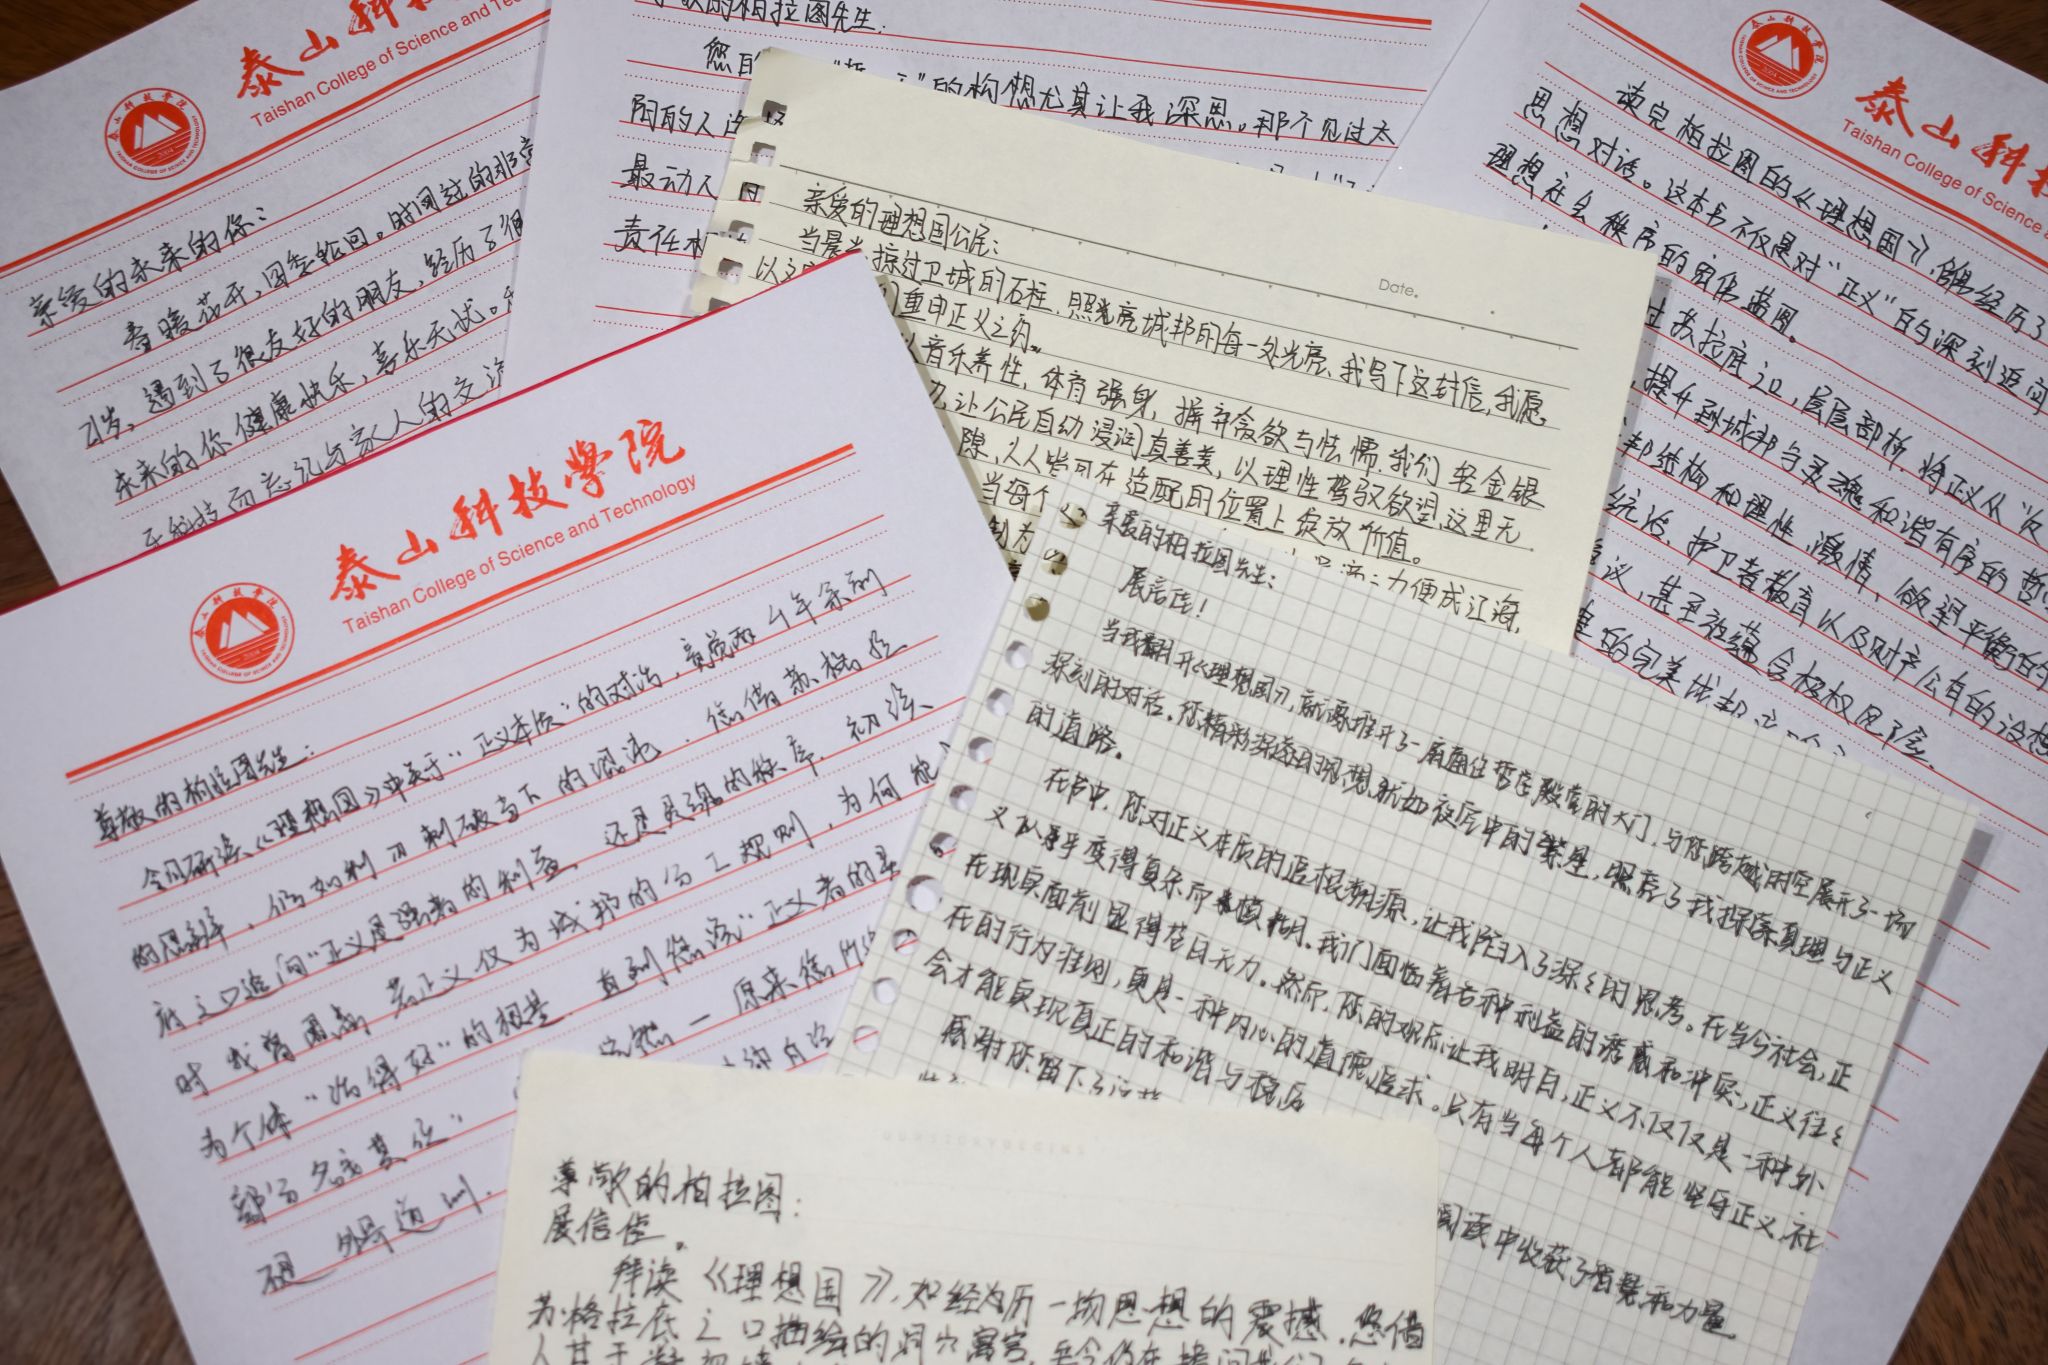 泰山科技
Taishan College of Science and Techno
亲爱的未来的你：
春暖花开，四季轮回。时间过的非常
21岁，遇到了很友好的朋友，经历了很
未来的你健康快乐，喜乐无忧。
于科技而忘记与家人的交流
敬的柏拉图先生：
您的
的构想尤其让我深思。那个见过太
阳的人
最动人
责任
亲爱的理想国公民：
Date.
当晨光掠过卫城的石柱，照亮城邦的每一处光亮，我写下这封信，我愿
以
重申正义之约。
音乐养性，体育强身，摒弃贪欲与怯懦，我们轻金银
力，让公民自动浸润真善美，以理性驾驭欲望，这里无
隙，人人皆可在适配的位置上绽放价值。
当每个
力便成江海，
泰山科
Taishan College of Science a
读完柏拉图的《理想国》，能经历了
思想对话。这本书不仅是对“正义”的深刻追问
理想社会秩序的宏伟蓝图。
过苏格拉底之口，层层剖析，将正义从“友
，提升到城邦与灵魂和谐有序的哲
邦结构和理性、激情、欲望平衡的
统治、护卫者教育以及财产公有的设想
议，甚至被蕴含极权风险。
的完美城邦
泰山科技學院
Taishan College of Science and Technology
尊敬的柏拉图先生：
今日研读《理想国》中关于“正义本质”的对话，竟觉两千年余前
的思辨，仍如利刃刺破当下的混沌，您借苏格拉
底之口追问“正义是强者的利益，还是灵魂的秩序，初读
时我曾困惑，若正义仅为城邦的分工规则，为何能
为个体“活得好”的根基，直到您说“正义者的灵
部分各安其位”
原来您所
亲爱的柏拉图先生：
展信佳！
当我翻开《理想国》，就像推开了一扇通往哲学殿堂的大门，与您跨越时空展开了一场
深刻的对话。您精彩深邃的思想，犹如夜空中的繁星，照亮了我探索真理与正义
的道路。
在书中，您对正义本质的追根溯源，让我陷入了深深的思考。在当今社会，正
义似乎变得复杂而模糊。我们面临着各种利益的诱惑和冲突，正义往往
在现实面前显得苍白无力。然而，您的观点让我明白，正义不仅仅是一种外
在的行为准则，更是一种内心的道德追求。只有当每个人都能坚守正义，社
会才能实现真正的和谐与稳定
感谢您留下了这
阅读中收获了智慧和力量
尊敬的柏拉图：
展信佳。
拜读《理想国》，如经历一场思想的震撼，您借
苏格拉底之口描绘的洞穴寓言，至今仍在